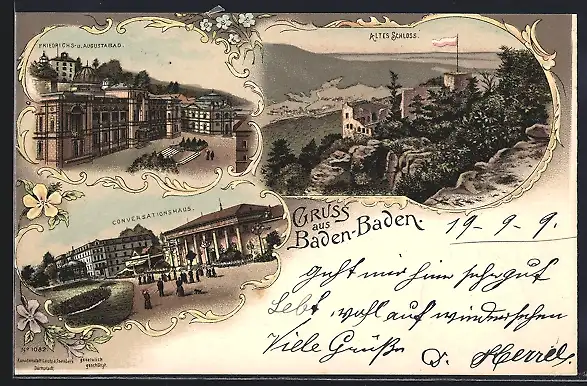 FRIEDRICHS- U. AUGUSTABAD.
ALTES SCHLOSS.
CONVERSATIONSHAUS.
GRUSS
aus
Baden-Baden.
19-9-9.
Geht mir hier sehr gut
Lebt wohl auf wiedersehen
Viele Grüße
No 1082.
Darmstadt.
gesetzlich
geschützt.